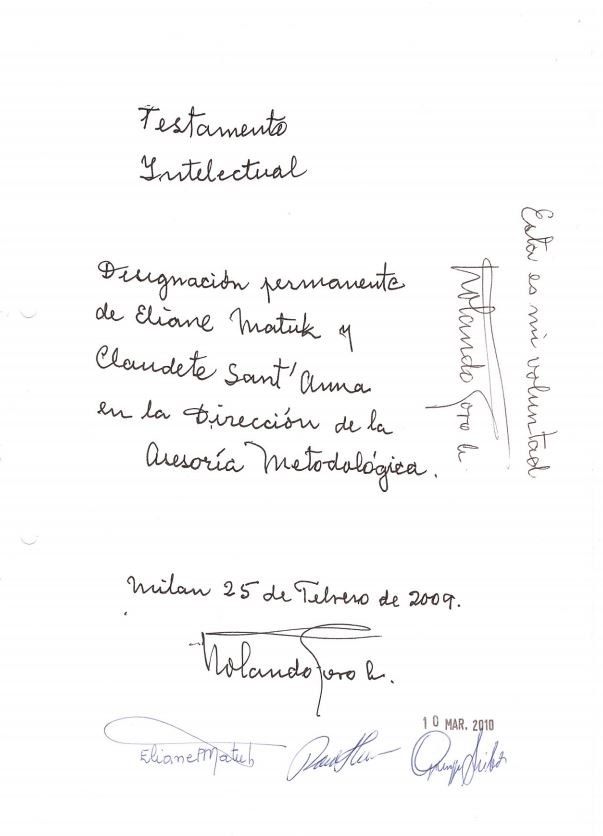 Testamento
Intelectual
Designación permanente
de Eliane Matuk y
Claudete Sant'Anna
en la Dirección de la
Asesoría Metodológica.
Esta es mi voluntad
Rolando Toro A.
Milan 25 de Febrero de 2009.
Rolando Toro A.
10 MAR. 2010
Eliane Matuk